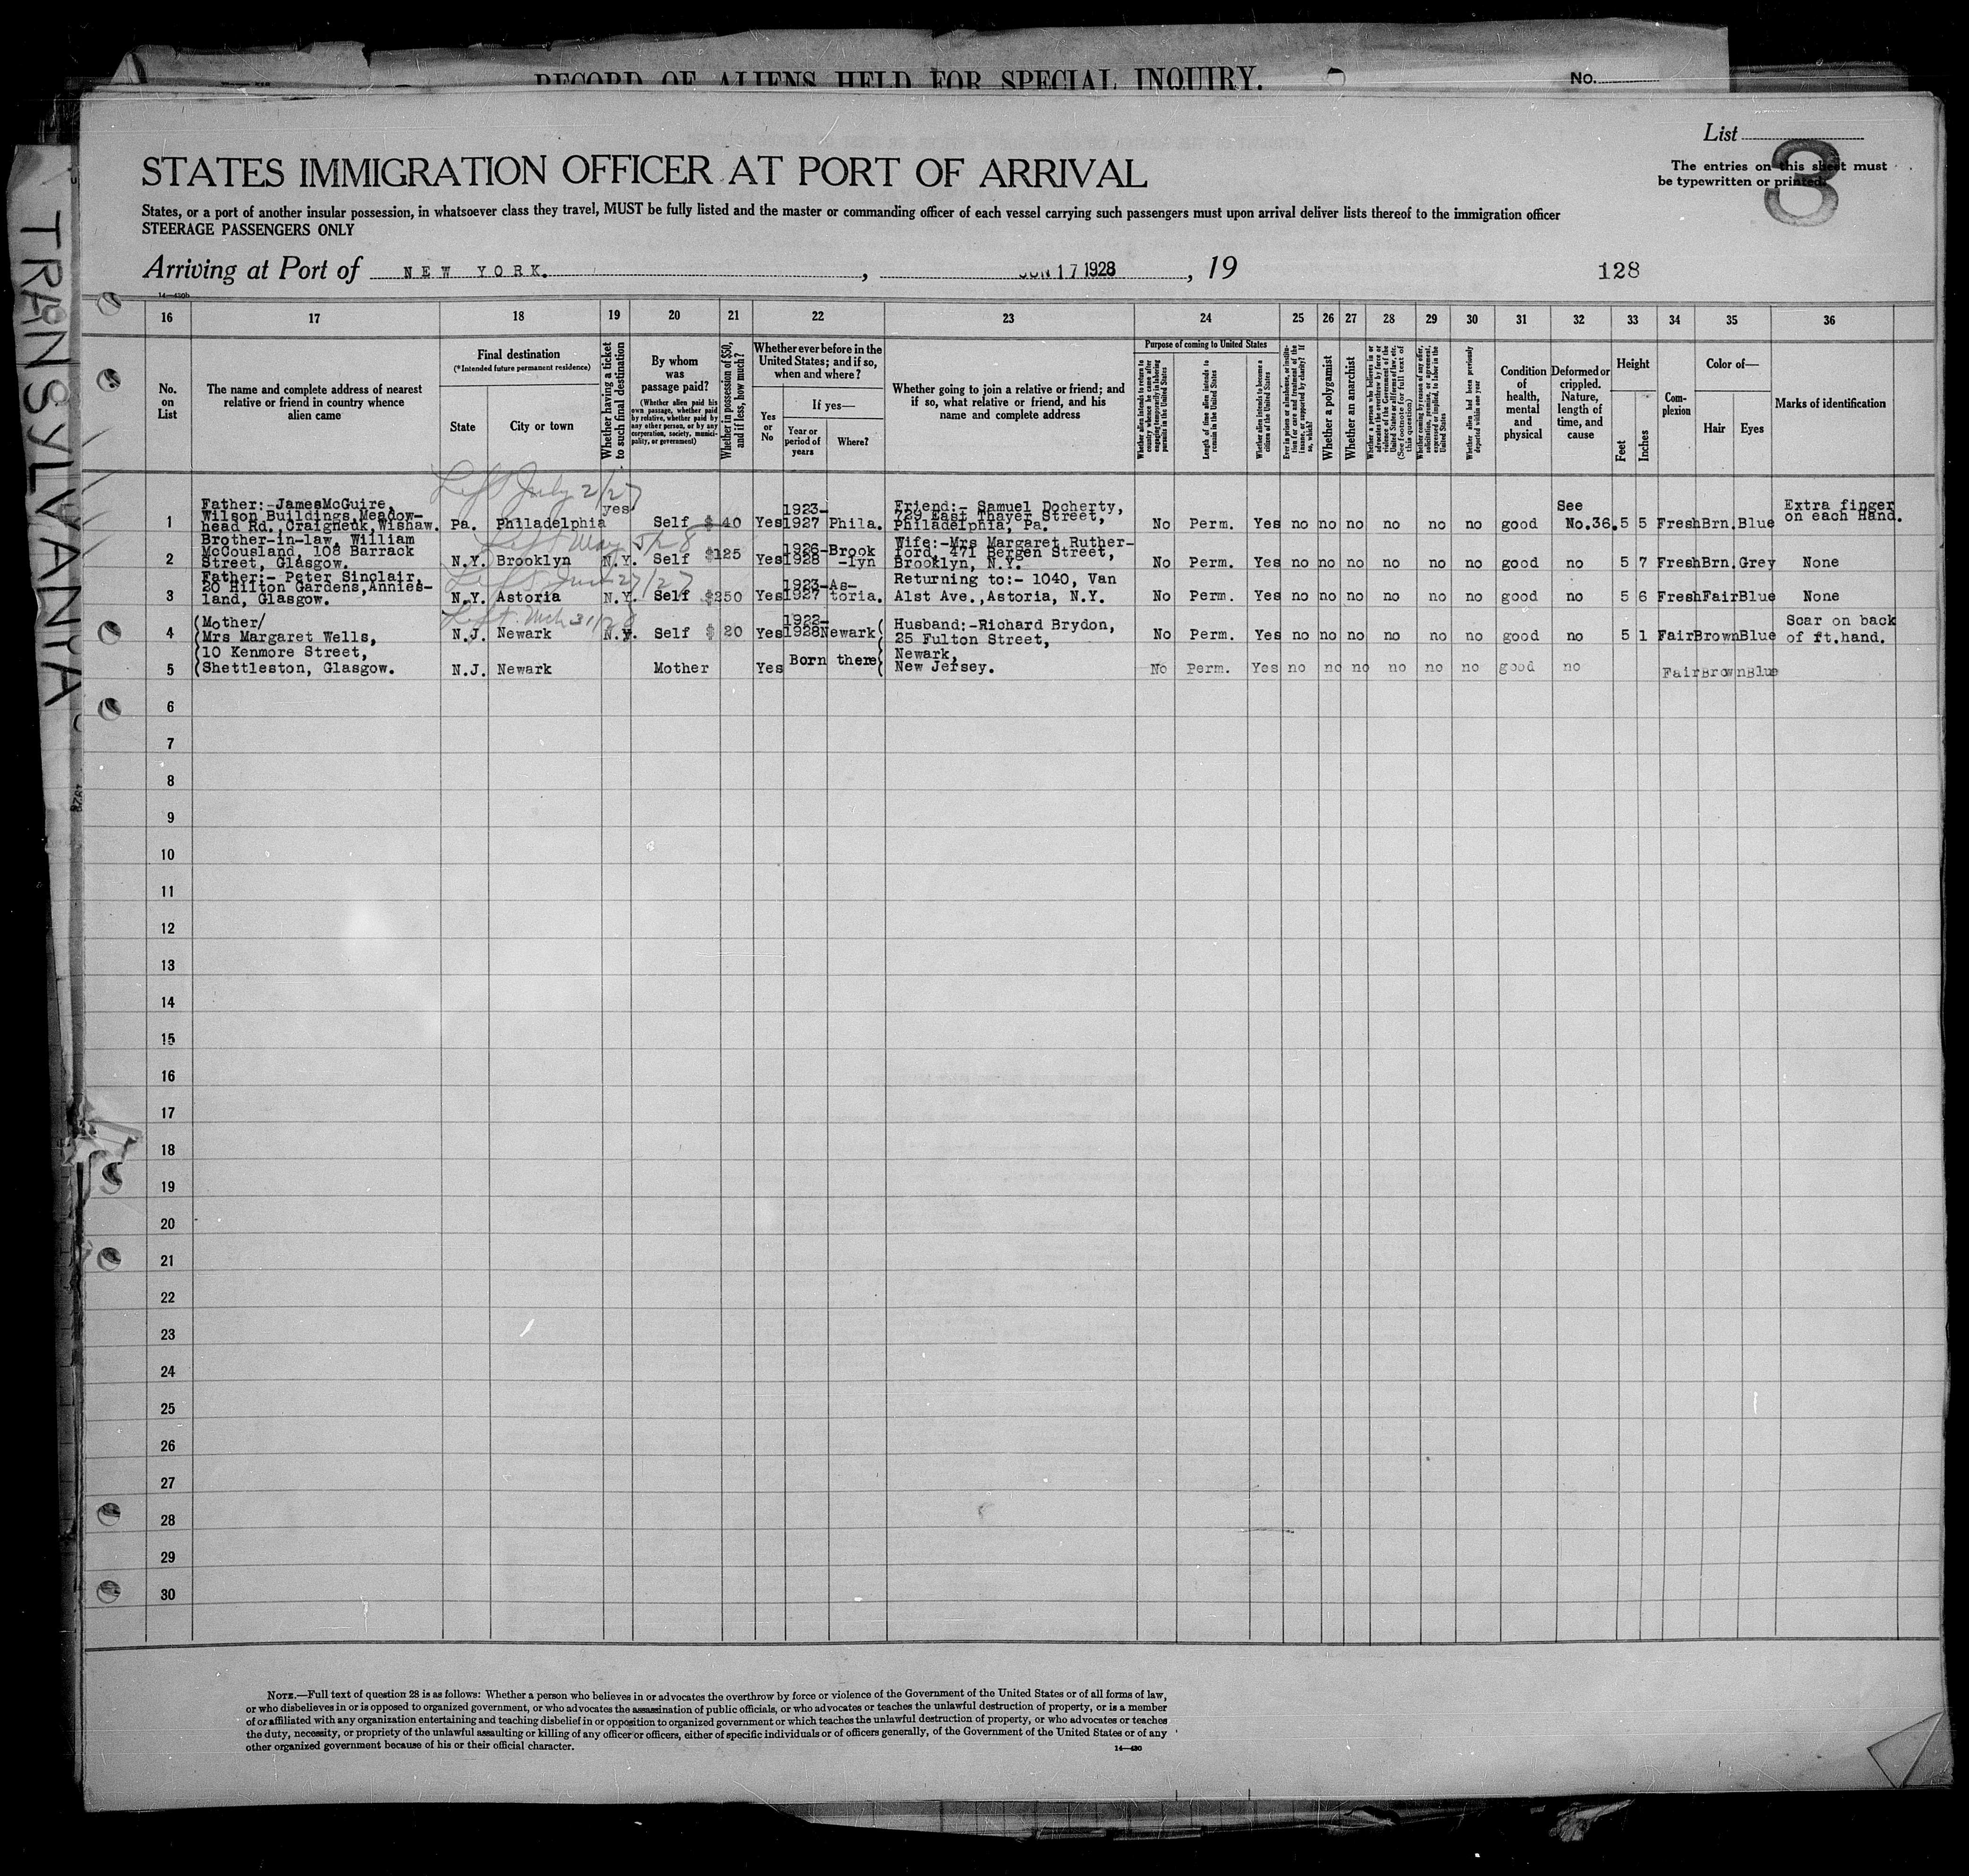 RECORD OF ALIENS HELD FOR SPECIAL INQUIRY.
No.
List
3
STATES IMMIGRATION OFFICER AT PORT OF ARRIVAL
The entries on this sheet must
be typewritten or printed.
States, or a port of another insular possession, in whatsoever class they travel, MUST be fully listed and the master or commanding officer of each vessel carrying such passengers must upon arrival deliver lists thereof to the immigration officer
STEERAGE PASSENGERS ONLY
Arriving at Port of NEW YORK. , JUN 17 1928 , 19
128
TRANSYLVANIA
14—430b
16 17 18 19 20 21 22 23 24 25 26 27 28 29 30 31 32 33 34 35 36
No. on List
The name and complete address of nearest relative or friend in country whence alien came
Final destination
(*Intended future permanent residence)
State
City or town
Whether having a ticket to such final destination
By whom was passage paid?
(Whether alien paid his own passage, whether paid by relative, whether paid by any other person, or by any corporation, society, municipality, or government)
Whether in possession of $50, and if less, how much?
Whether ever before in the United States; and if so, when and where?
Yes or No
If yes—
Year or period of years
Where?
Whether going to join a relative or friend; and if so, what relative or friend, and his name and complete address
Purpose of coming to United States
Whether alien intends to return to country whence he came after engaging temporarily in laboring pursuits in the United States
Length of time alien intends to remain in the United States
Whether alien intends to become a citizen of the United States
Ever in prison or almshouse, or institution for care and treatment of the insane, or supported by charity? If so, which?
Whether a polygamist
Whether an anarchist
Whether a person who believes in or advocates the overthrow by force or violence of the Government of the United States or all forms of law, etc. (See footnote for full text of this question)
Whether coming by reason of any offer, solicitation, promise, or agreement, expressed or implied, to labor in the United States
Whether alien had been previously deported within one year
Condition of health, mental and physical
Deformed or crippled. Nature, length of time, and cause
Height
Feet
Inches
Complexion
Color of—
Hair
Eyes
Marks of identification
Left July 2/27
1 Father:-JamesMcGuire, Wilson Buildings,Meadow-head Rd.,Craigneuk,Wishaw. Pa. Philadelphia yes Self $ 40 Yes 1923-1927 Phila. Friend:- Samuel Docherty, 729 East Thayer Street, Philadelphia, Pa. No Perm. Yes no no no no no no good See No.36. 5 5 Fresh Brn. Blue Extra finger on each Hand.
Left May 5/28
2 Brother-in-law, William McCousland, 108 Barrack Street, Glasgow. N.Y. Brooklyn N.Y. Self $125 Yes 1926-1928 Brook-lyn Wife:-Mrs Margaret Ruther-ford, 471 Bergen Street, Brooklyn, N.Y. No Perm. Yes no no no no no no good no 5 7 Fresh Brn. Grey None
Left June 27/27
3 Father:- Peter Sinclair, 20 Hilton Gardens,Annies-land, Glasgow. N.Y. Astoria N.Y. Self $250 Yes 1923-1927 As-toria. Returning to:- 1040, Van Alst Ave.,Astoria, N.Y. No Perm. Yes no no no no no no good no 5 6 Fresh Fair Blue None
Left Mch 31/28
4 (Mother/ (Mrs Margaret Wells, N.J. Newark N.Y. Self $ 20 Yes 1922-1928 Newark( Husband:-Richard Brydon, 25 Fulton Street, No Perm. Yes no no no no no no good no 5 1 Fair Brown Blue Scar on back of ft.hand.
5 (10 Kenmore Street, (Shettleston, Glasgow. N.J. Newark Mother Yes Born there( Newark, New Jersey. No Perm. Yes no no no no no no good no Fair Brown Blue
6
7
8
9
10
11
12
13
14
15
16
17
18
19
20
21
22
23
24
25
26
27
28
29
30
NOTE.—Full text of question 28 is as follows: Whether a person who believes in or advocates the overthrow by force or violence of the Government of the United States or of all forms of law,
or who disbelieves in or is opposed to organized government, or who advocates the assassination of public officials, or who advocates or teaches the unlawful destruction of property, or is a member
of or affiliated with any organization entertaining and teaching disbelief in or opposition to organized government or which teaches the unlawful destruction of property, or who advocates or teaches
the duty, necessity, or propriety of the unlawful assaulting or killing of any officer or officers, either of specific individuals or of officers generally, of the Government of the United States or of any
other organized government because of his or their official character.
14—430